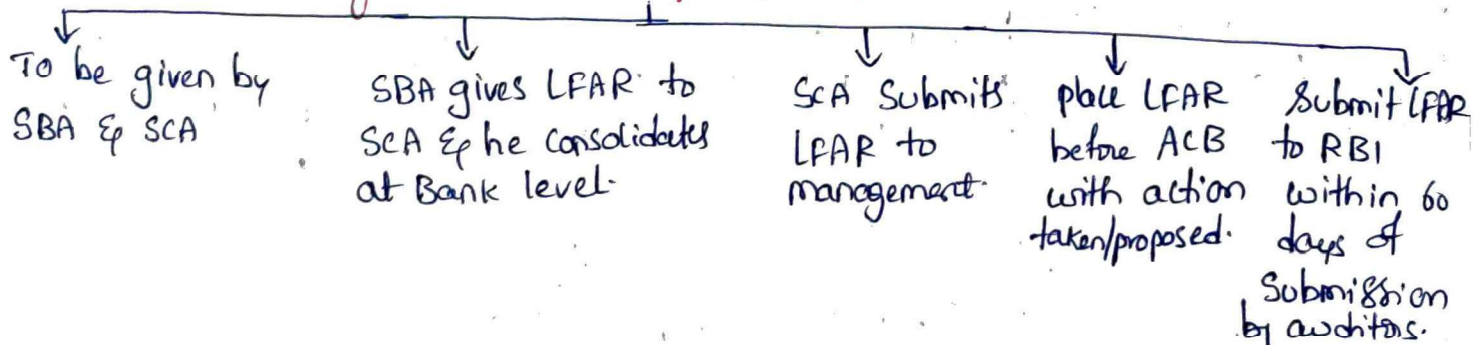 To be given by
SBA & SCA
SBA gives LFAR to
SCA & he consolidates
at Bank level.
SCA Submits
LFAR to
management.
place LFAR
before ACB
with action
taken/proposed.
Submit LFAR
to RBI
within 60
days of
Submission
by auditors.